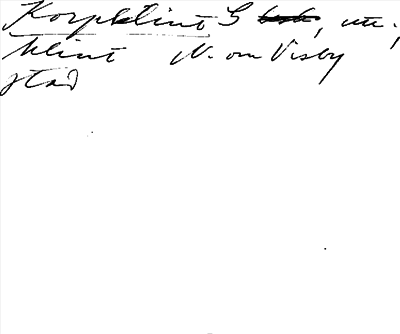 Korpklint G , utt.,
klint N. om Visby
stad